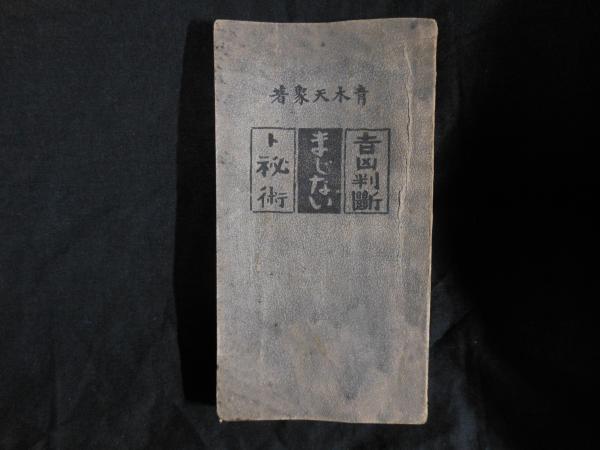 青木天衆著
吉凶判斷
まじない
ト祕術